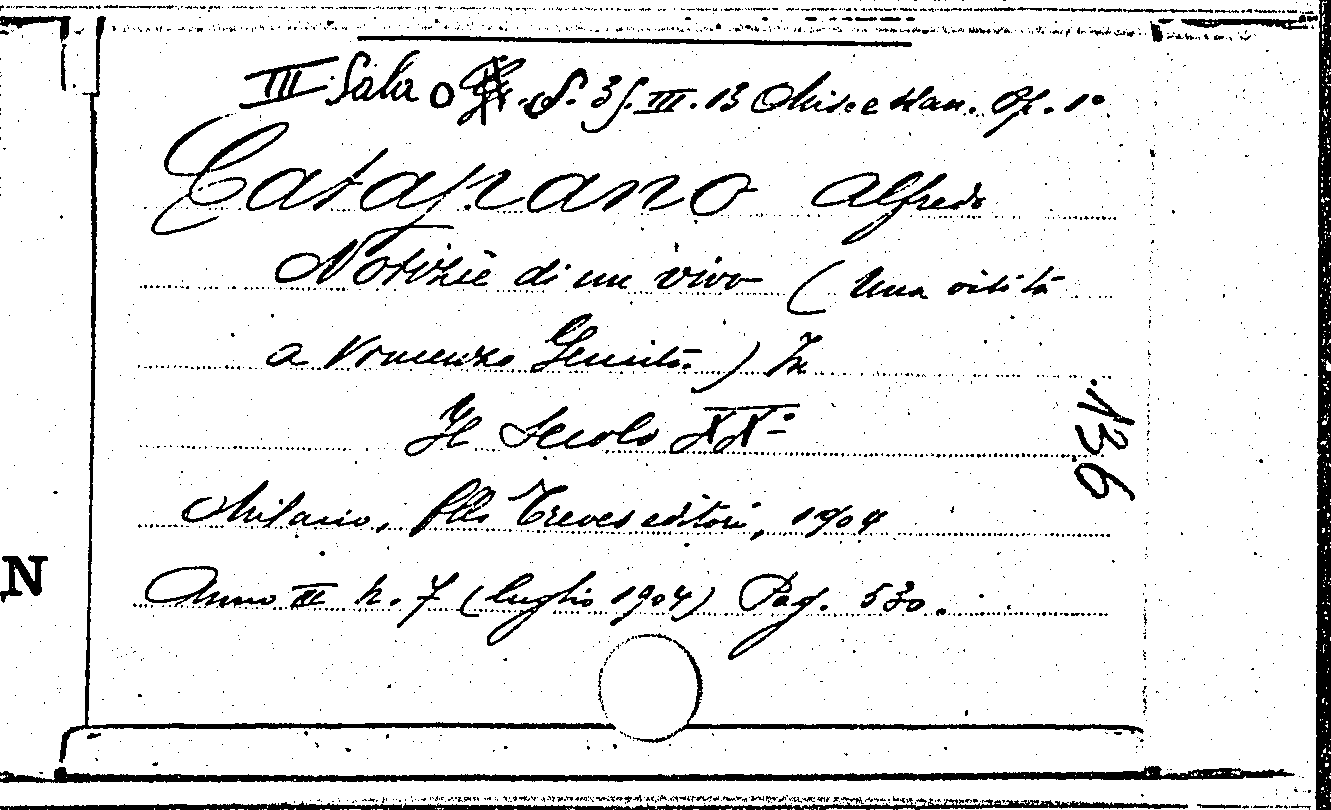 III Sala S. 3 f. III. 13 Misc. e Man. Op. 1°
Catapano Alfredo
Notizie di un vivo (Una visita
a Vincenzo Gemito.) In
Il Secolo XX°
Milano, flli Treves editori, 1904
Anno III n. 7 (luglio 1904) Pag. 530.
136
N